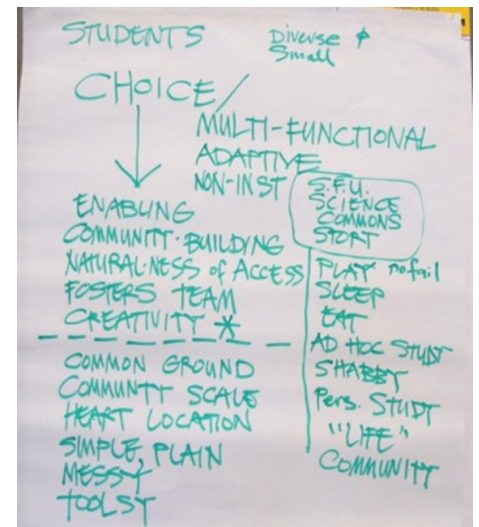 STUDENTS
Diverse &
Small
CHOICE/
MULTI-FUNCTIONAL
ADAPTIVE
NON-INST
ENABLING
COMMUNITY-BUILDING
NATURAL-NESS of ACCESS
FOSTERS TEAM
CREATIVITY *
COMMON GROUND
COMMUNTY SCALE
HEART LOCATION
SIMPLE, PLAIN
MESSY
TOOLSY
S.F.U.
SCIENCE
COMMONS
STORY
PLAY no fail
SLEEP
EAT
AD HOC STUDY
SHABBY
Pers. STUDY
"LIFE"
COMMUNITY